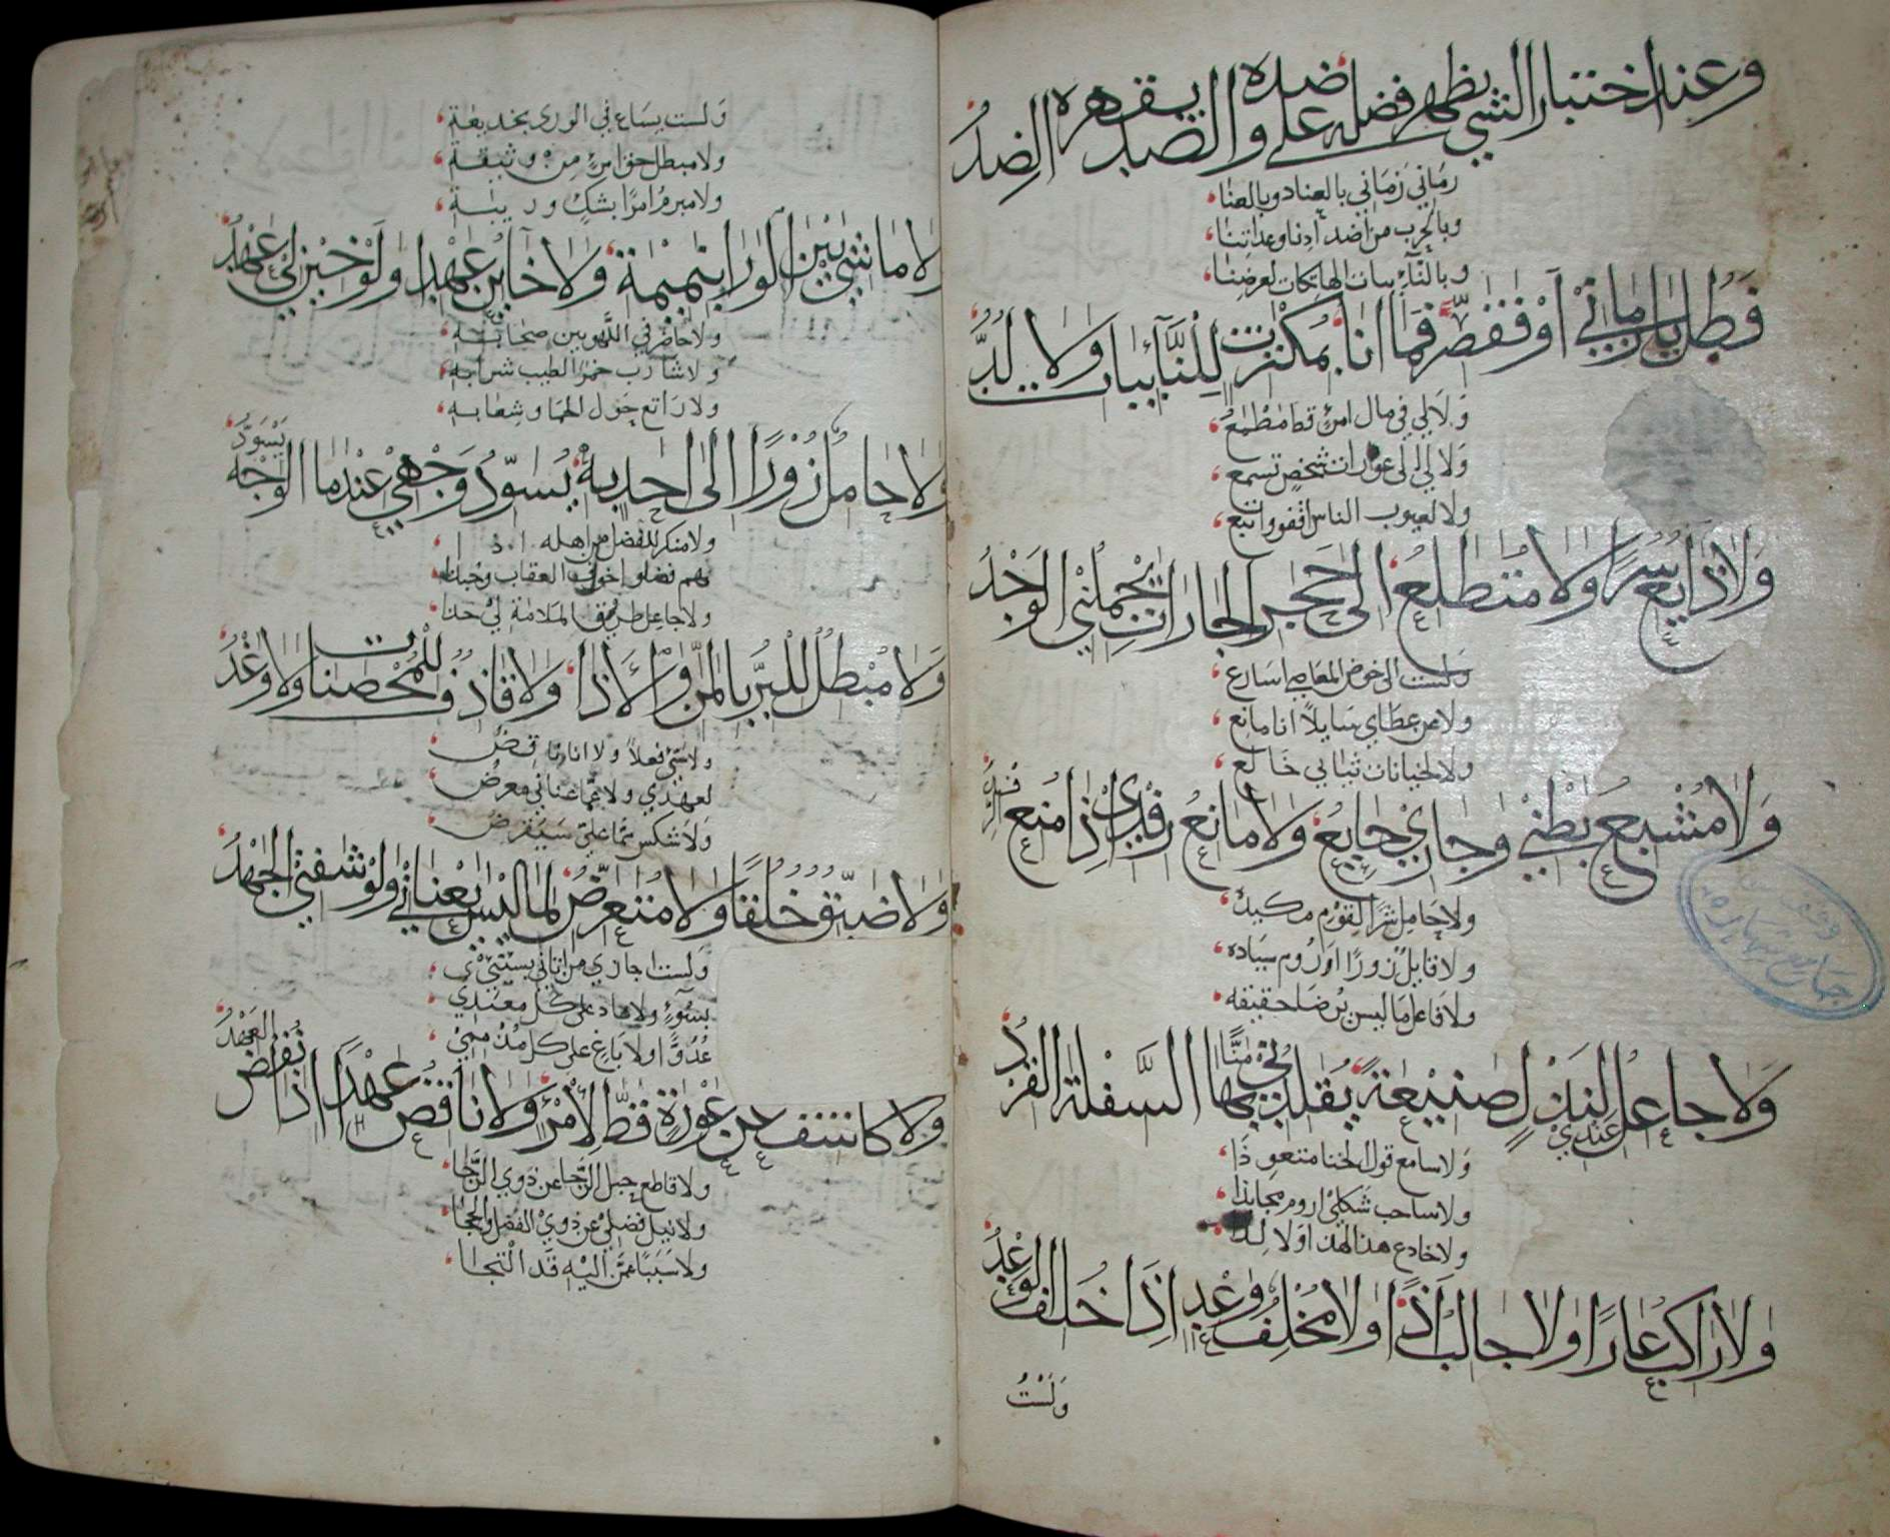 وعند اختبار الشي يظهر فضله على ضده والضد يقهره الضدُ
رماني زماني بالعناد وبالعنا
وبالحرب من اضدادنا وعداتنا
وبالنآئبات الهاتكات لعرضنا
فَطُل يا زماني أوْ فقصّر فما انا بمكترث للنَّائبات ولا لبدُّ
وَلا لي في مال امرئ قط مطمع
وَلا لي الى عورات شخص تسمع
ولا لعيوب الناس اقفو واتبع
وَلا ذايع سرًا ولا متطلع الى حجر الجارات يحملني الوَجْدُ
ولست الى خوض المعاصي اسارع
ولا من عطاي سايلاً انا مانع
ولا لخيانات ثيابي خالع
وَلا مُشبع بَطْني وجاري جايع ولا مانع رفدي اذا منع الرفدُ
ولا حامل شرًا لقوم مكيده
ولا قابل زورًا اروم سياده
ولا فاعل ما ليس يُرضا حقيقه
وَلا جاعل عندي لنذل صنيعةً يقلدني منًّا بها السَّفلة القردُ
وَلا سامع قول الخنا متعوذا
ولا صاحب شكلي اروم مجابذا
ولا خادع هذا لهذا ولا لذا
ولا راكب عارًا ولا جالب اذًا ولا مخلف وعدا اذا خلف الوَعْدُ
وَلَسْتُ
وَلست بساع في الورى بخديعة
ولا مبطل حق امرئ من وثيقة
ولا مبرم امرًا بشك وريبة
ولا ماشي بين الورا بنميمة ولا خاين عهدا ولو خين لي عهدُ
ولا حاضر في اللهو بين صحابه
ولا شارب خمر الطيب شرابه
ولا راتع حول الحما وشعابه
ولا حامل زُورًا الى احد به يُسوّدُ وَجْهي عندما يَسْوَدّ الوجهُ
ولا منكر للفضل من اهله
ولا جاعل طرق الملامة لي حذا
وَلا مُبْطل للبرّ بالمنّ والأذا ولا قاذف للمُحْصنات ولا وَغْدُ
ولا سَيّئ فعلاً ولا انا ناقض
لعهدي ولا عما عناني معرض
ولا شكس مما علي سيفرض
وَلا ضيّق خلقًا ولا متعرّض لما ليس يعناني ولو شفني الجهدُ
ولست اجازي من اتاني يسيئني
بسُوءٍ ولا عاد على كل معتدي
عُدُوًّا ولا باغ على كل مذ مني
ولا كاشف عن عَوْرة قط لامرئ ولا ناقض عهدًا اذا نقض العهدُ
ولا قاطع حبل الرّجا عن ذوي الرّجا
ولا نيل فضلي عن ذوي الفضل والحجا
ولا سَببًا عمّن اليه قد التجا
وقف
جامع شهاره